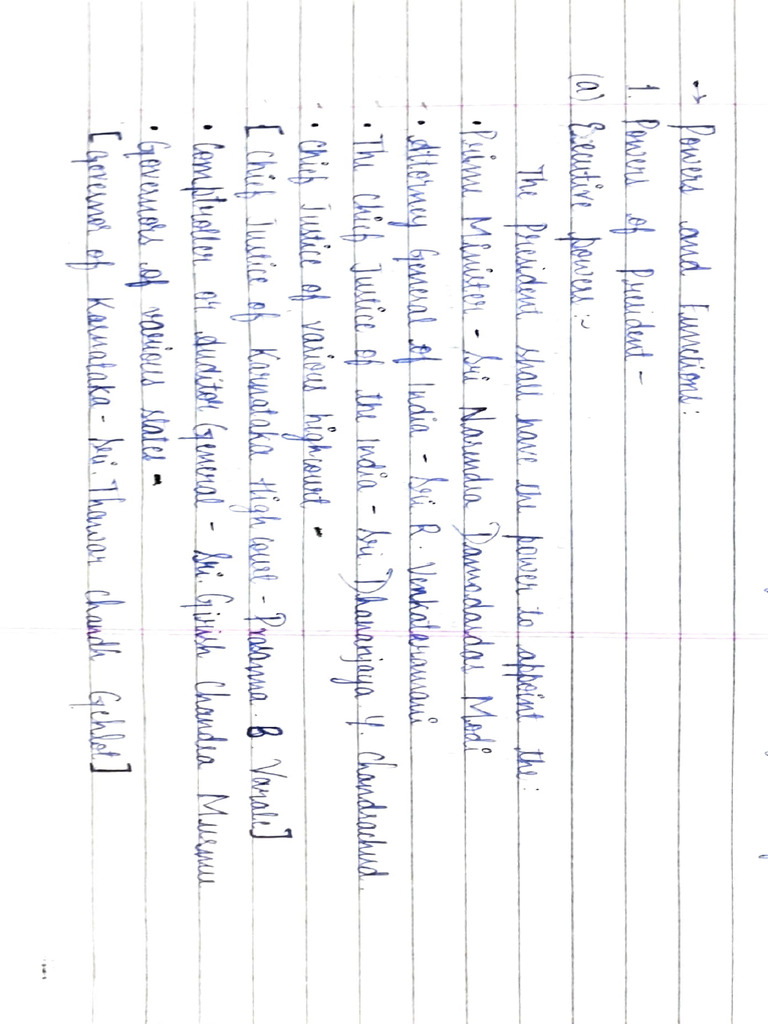 → Powers and Functions:
1. Powers of President -
(a) Executive powers :-
The President shall have the power to appoint the:
• Prime Minister - Sri Narendra Damodardas Modi
• Attorney General of India - Sri R. Venkataramani
• The Chief Justice of the India - Sri. Dhananjaya Y. Chandrachud.
• Chief Justice of various highcourt -
[Chief Justice of Karnataka High court - Prasanna. B Varale]
• Comptroller or Auditor General - Sri. Girish Chandra Murmu
• Governors of various states -
[Governor of Karnataka - Sri. Thawar Chandh Gehlot]